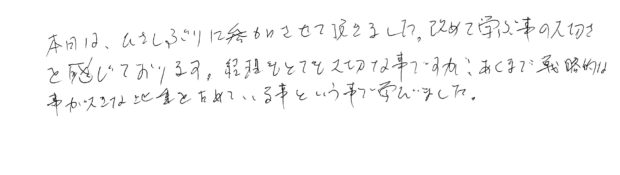 本日は、ひさしぶりに参加させて頂きました。改めて学ぶ事の大切さ
を感じております。経理もとても大切な事ですが、あくまで戦略的な
事が大きな地位を占めている事という事で学びました。